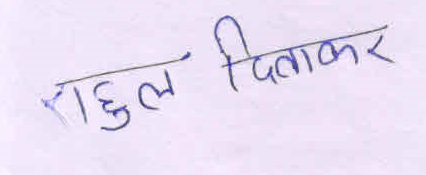 राहुल दिवाकर